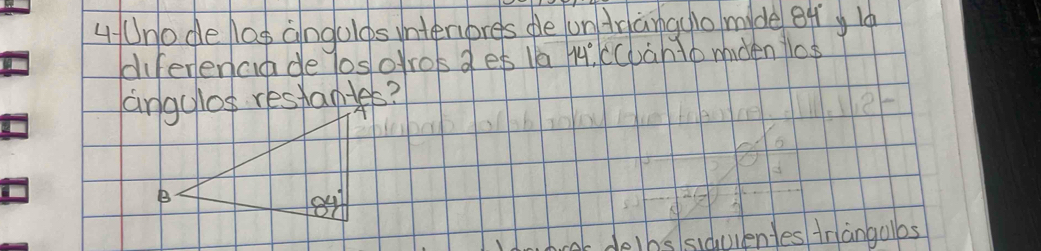 4-Uno de los ángulos interiores de un triángulo mide 84° y la
diferencia de los otros 2 es la 14°. ¿Cuánto miden los
ángulos restantes?
A
B
84°
de los siguientes triángulos